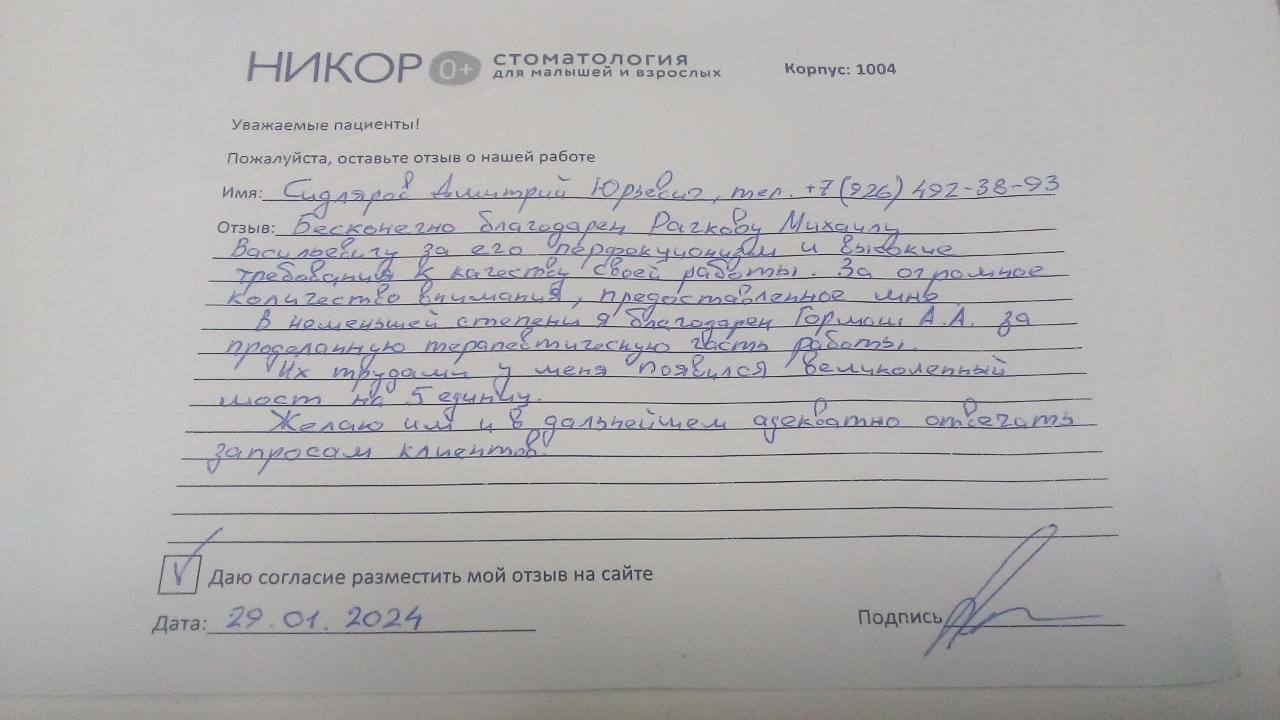 НИКОР 0+ СТОМАТОЛОГИЯ
ДЛЯ МАЛЫШЕЙ И ВЗРОСЛЫХ
Корпус: 1004
Уважаемые пациенты!
Пожалуйста, оставьте отзыв о нашей работе
Имя: Сидляров Дмитрий Юрьевич, тел. +7 (926) 492-38-93
Отзыв: Бесконечно благодарен Рачкову Михаилу
Васильевичу за его перфекционизм и высокие
требования к качеству своей работы. За огромное
количество внимания, предоставленное мне.
В неменьшей степени я благодарен Гормаш А.А. за
проделанную терапевтическую часть работы.
Их трудами у меня появился великолепный
мост на 5 единиц.
Желаю им и в дальнейшем адекватно отвечать
запросам клиентов.
Даю согласие разместить мой отзыв на сайте
Дата: 29.01.2024
Подпись